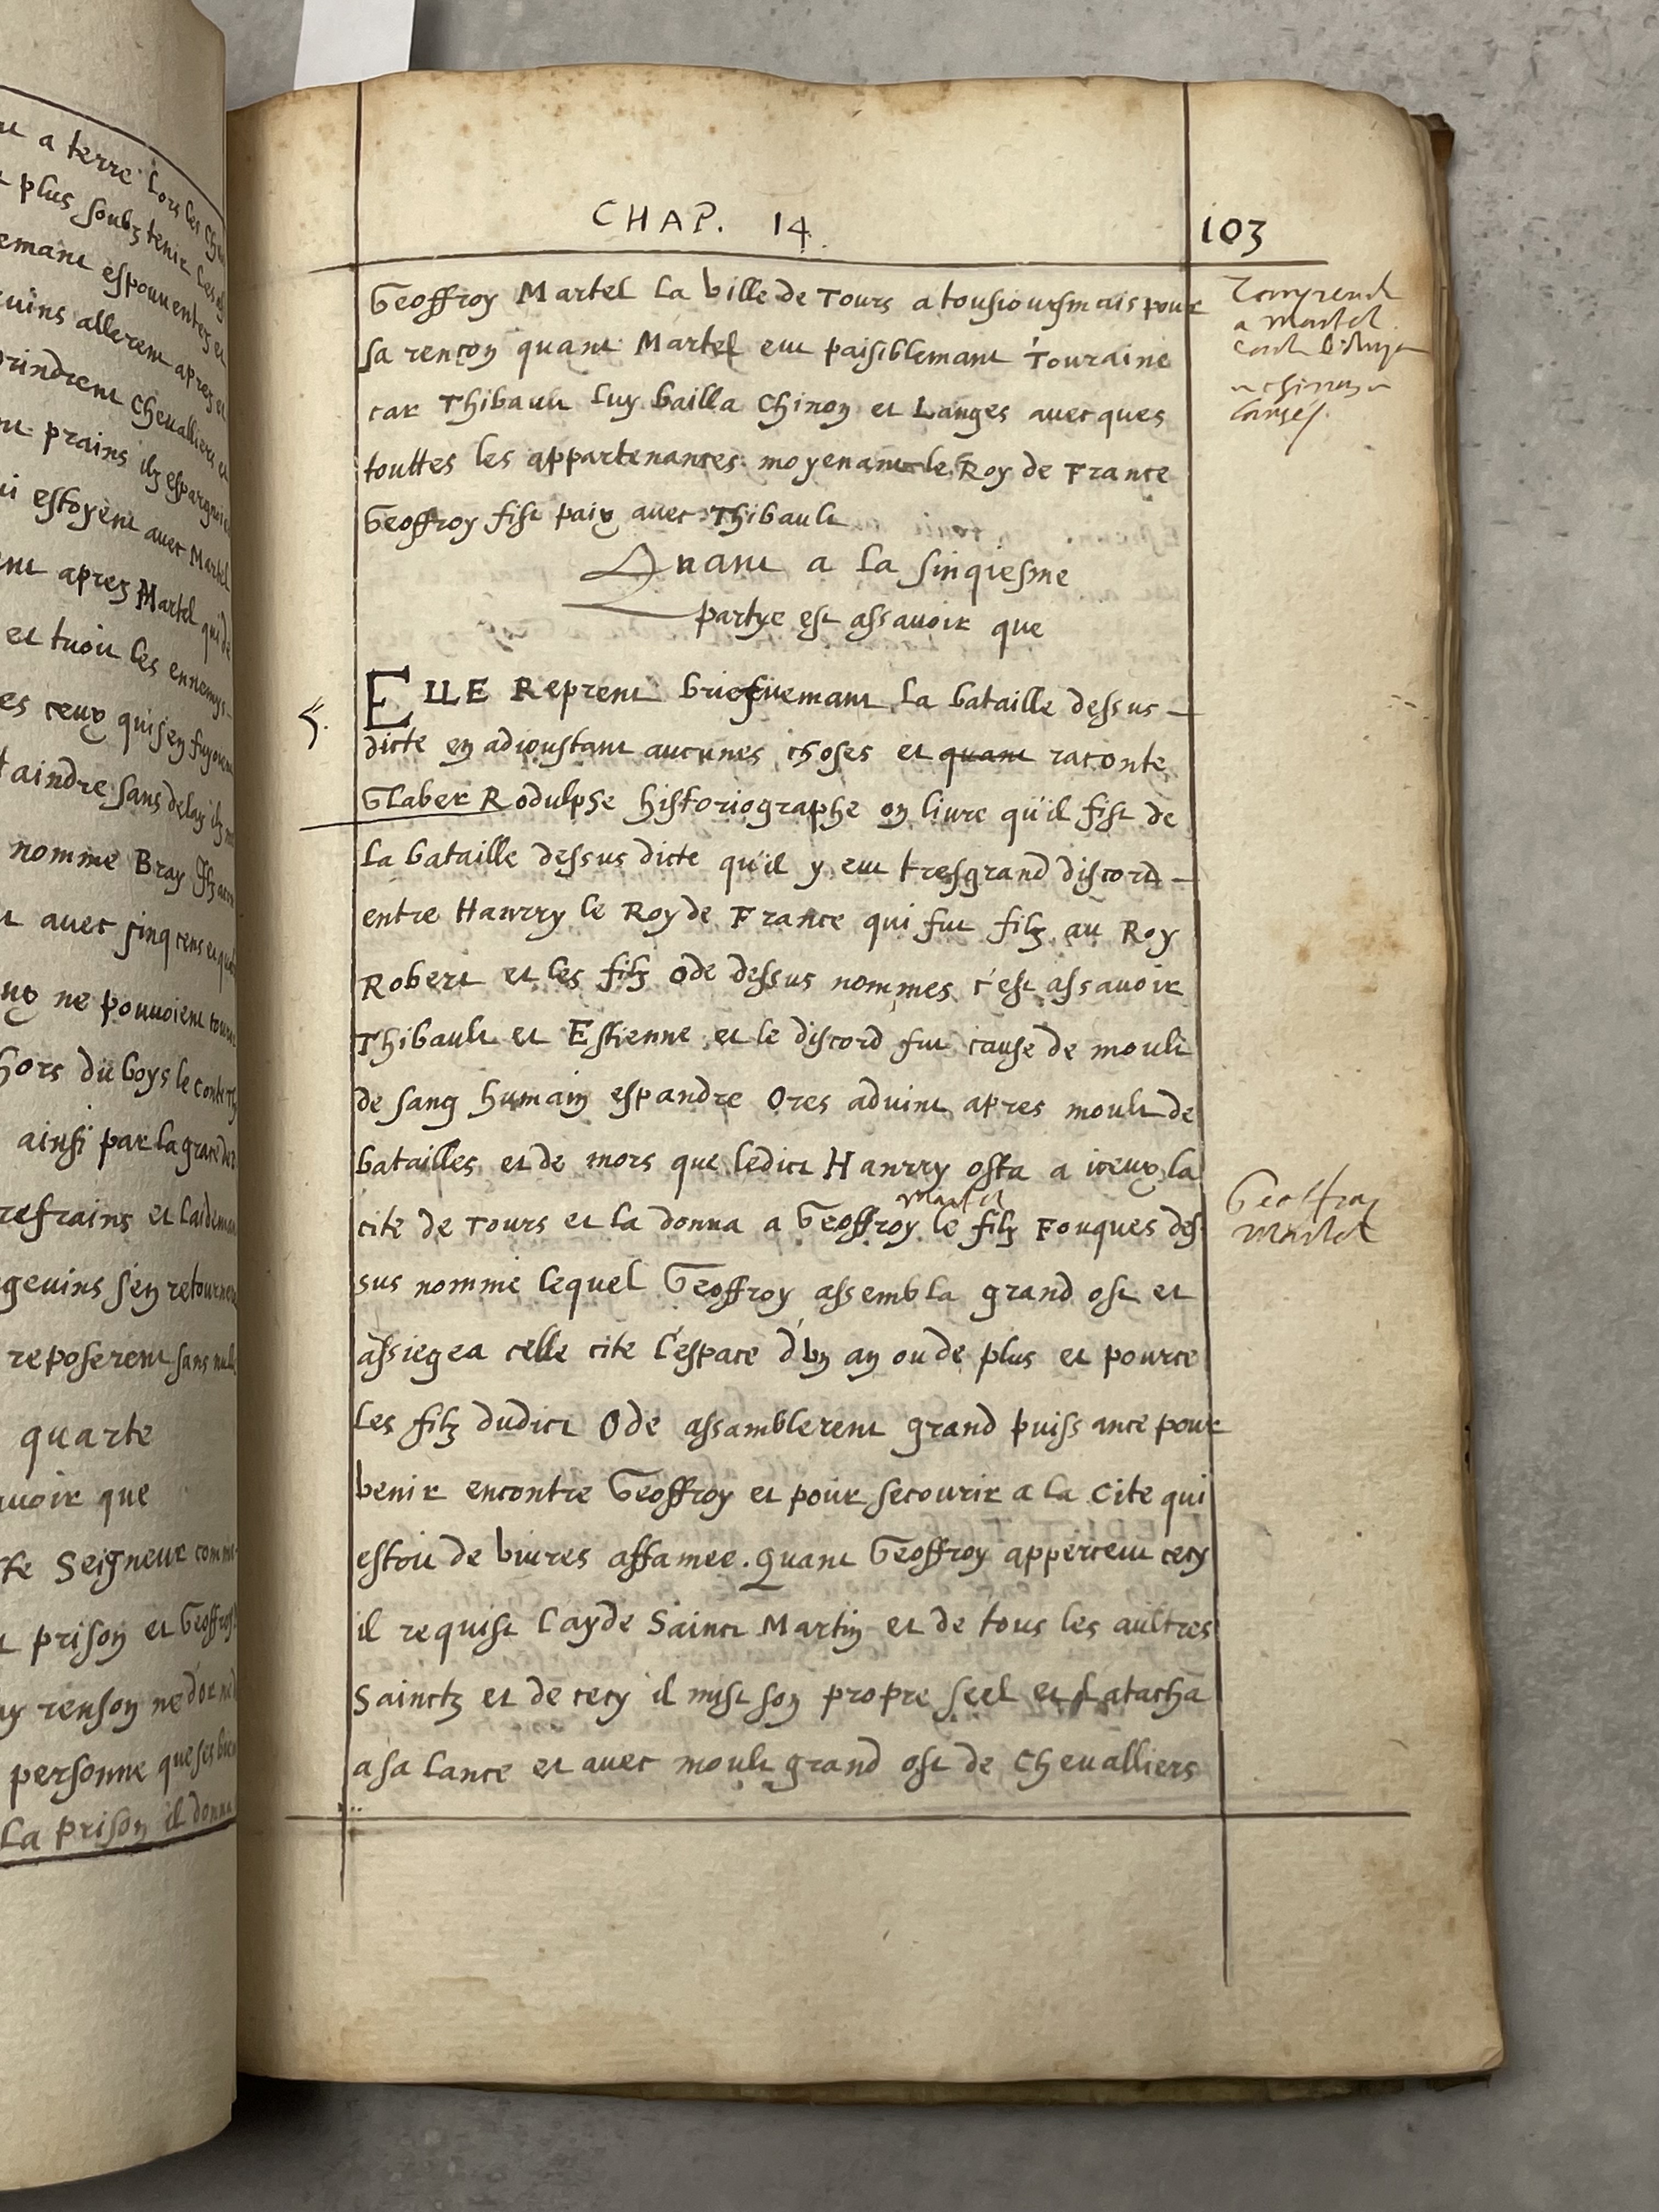 nt a terre Lors les
plus soubz tenir les
emant espouuentez et
uins allerent apres et
prindrent Chevalliers et
nt prains ilz espargnie
i estoyent avec Martel
ent aprez Martel qui de
et tuoit les ennemys
es ceux qui s'en fuyoient
taindre sans delay ilz
nomme Bray Ilz
avec sinq cens et
ne pouvoient
hors du boys le conte
ainsi par la grace de
refrains et laidemen
gevins s'en retourner
reposerent sans nul
quarte
avoir que
te Seigneur comme
prison et Geoffroy
renson ne
personne que ses
La prison il donna
CHAP. 14.
103
Geoffroy Martel La ville de Tours a tousioursmais pour
sa rençon quant Martel eut paisiblemant Touraine
car Thibault luy bailla Chinon et Langes avecques
touttes les appartenances moyenant le Roy de France
Geoffroy fist paix avec Thibault
Quant a la sinqiesme
partye est assavoir que
5.
ELLE Reprent briefvemant la bataille dessus
dicte en adioustant aucunes choses et quant raconte
Glaber Rodulpse historiographe on livre qu'il fist de
la bataille dessus dicte qu'il y eut tresgrand discord
entre Hanrry le Roy de France qui fut filz au Roy
Robert et les filz Ode dessus nommes c'est assavoir
Thibault et Estienne et le discord fut cause de moult
de sang humain espandre Ores advint apres moult de
batailles et de mors que ledict Hanrry osta a iceux la
martel
cite de Tours et la donna a Geoffroy le filz Fouques des
sus nomme lequel Geoffroy assembla grand ost et
assiegea celle cite l'espace d'vn an ou de plus et pource
les filz dudict Ode assamblerent grand puissance pour
venir encontre Geoffroy et pour secourir a la Cite qui
estoit de vivres affamee. Quant Geoffroy apperceut cecy
il requist l'ayde Sainct Martin et de tous les aultres
Sainctz et de cecy il mist son propre seel et l'atacha
a sa lance et avec moult grand ost de Chevalliers
a martel
Geoffroy
Martel